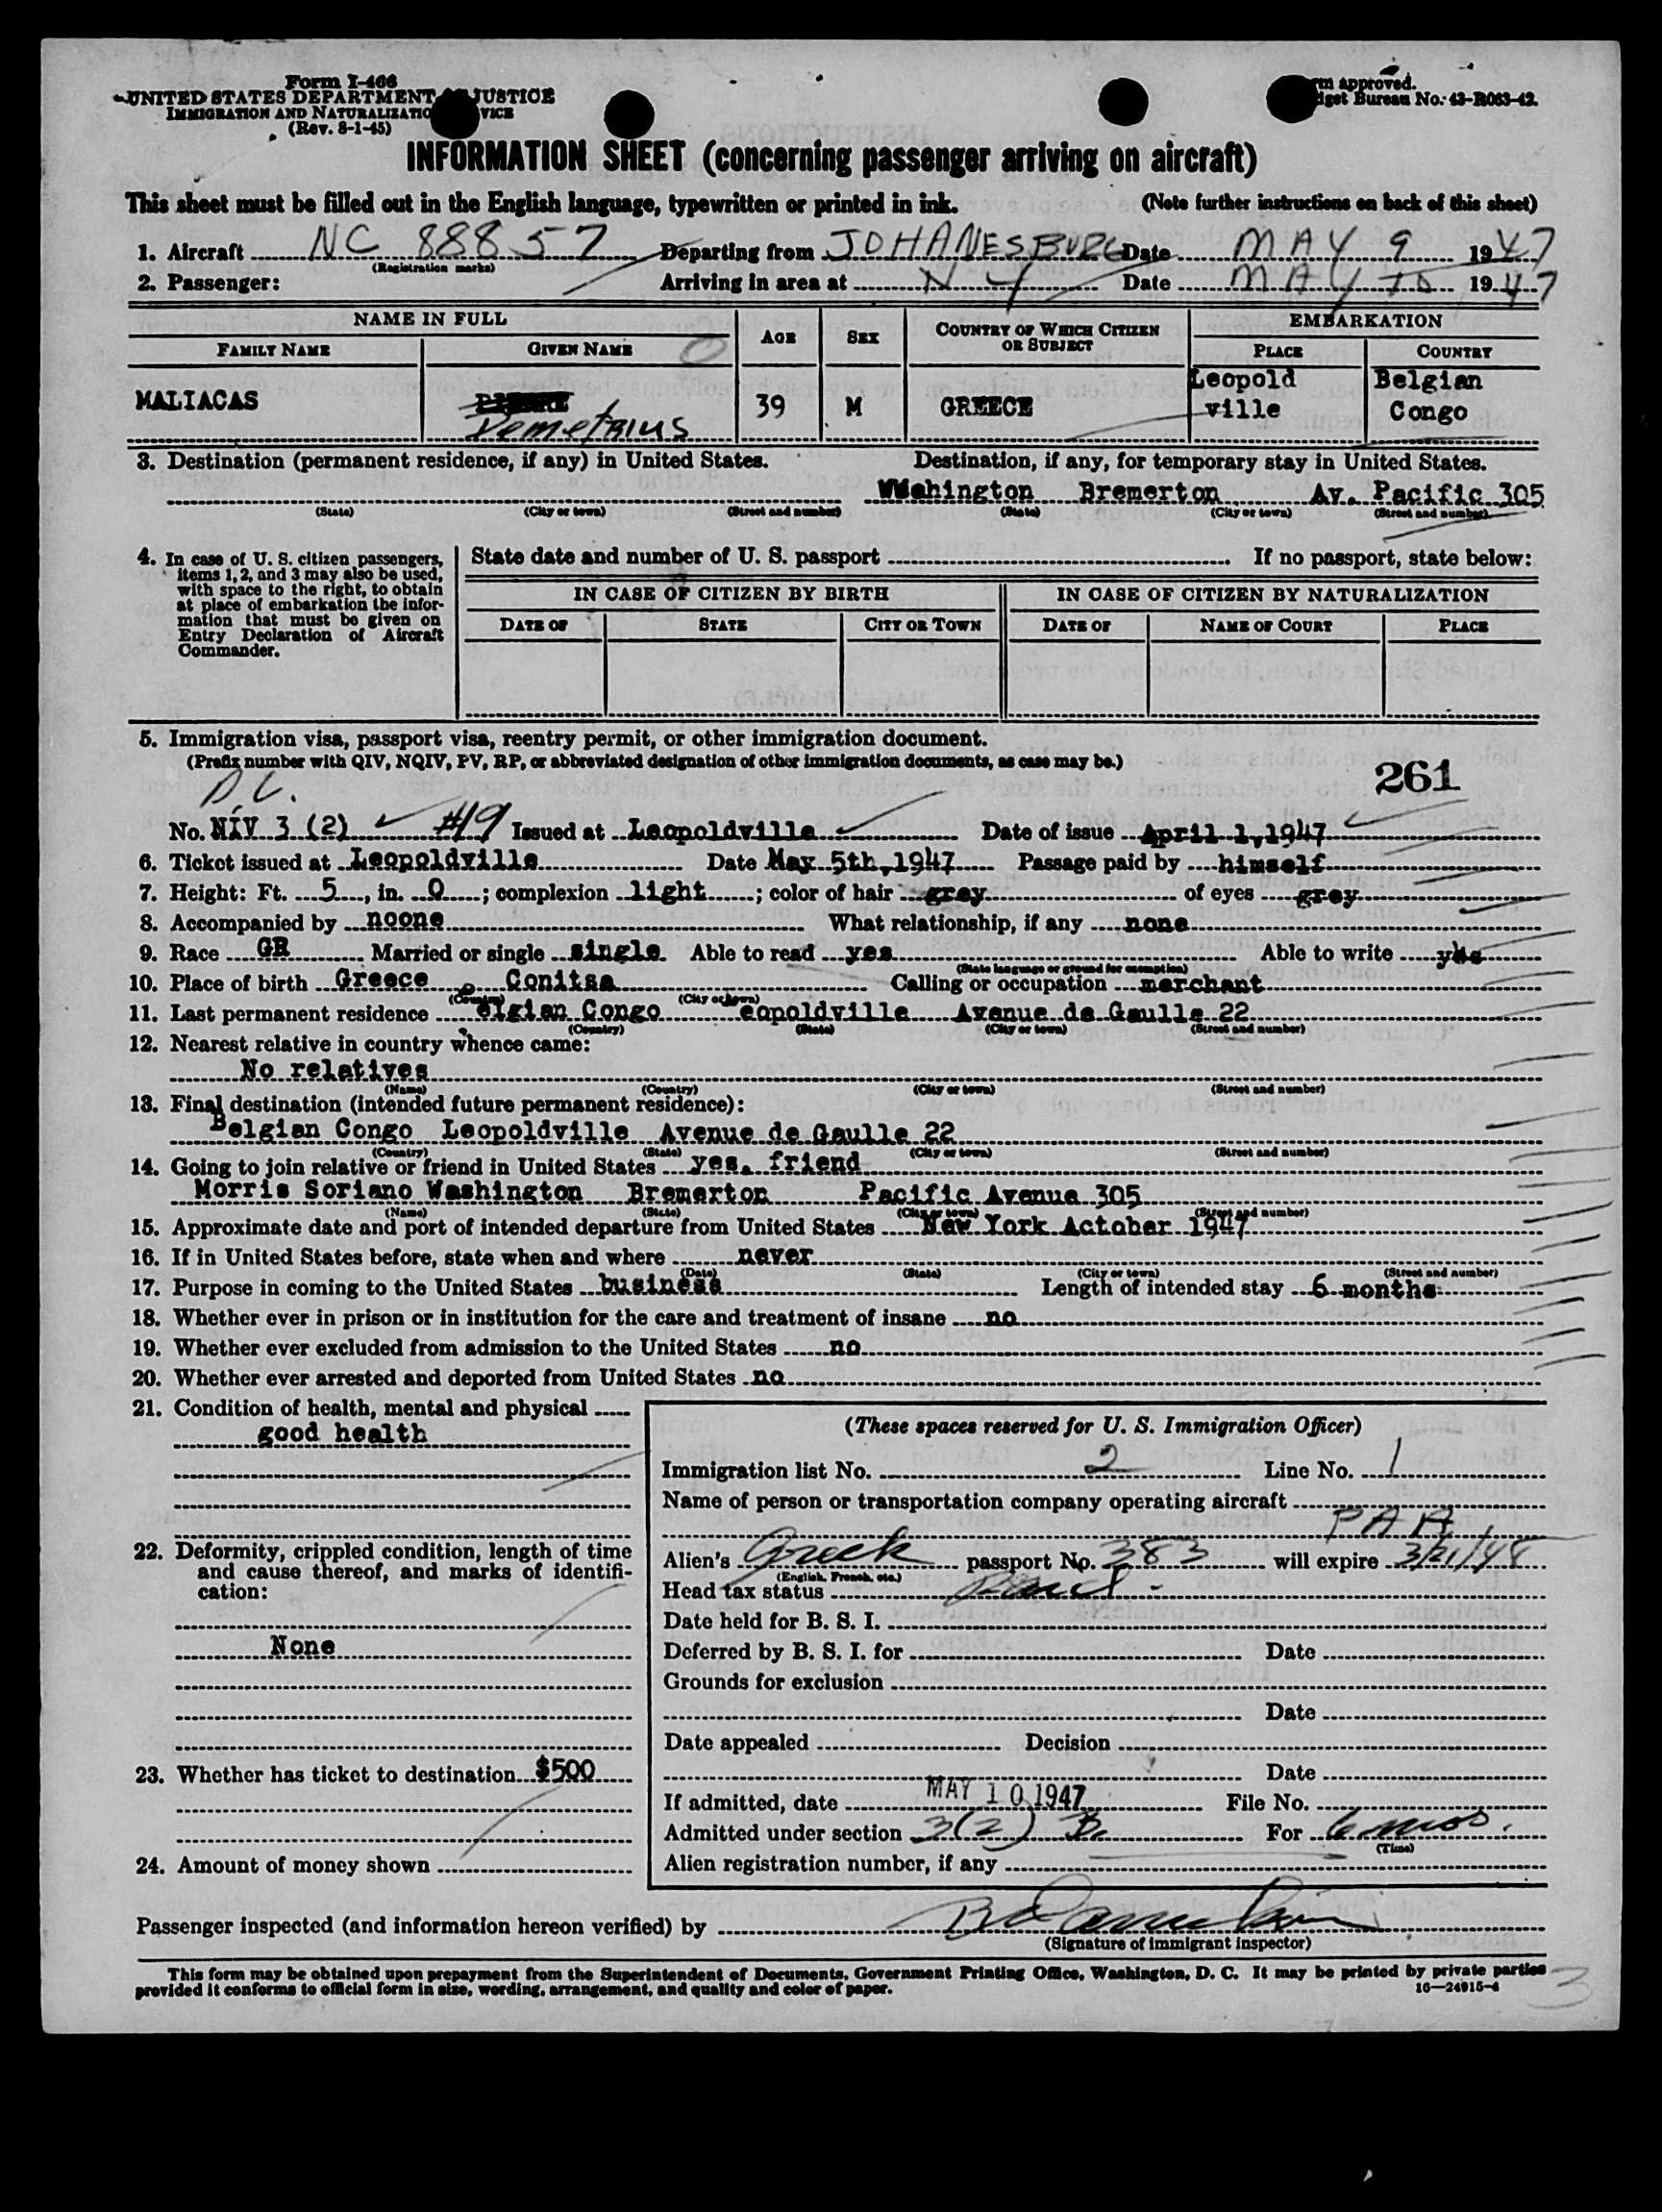 Form I-466
UNITED STATES DEPARTMENT JUSTICE
IMMIGRATION AND NATURALIZATIO VICE
(Rev. 8-1-45)
rm approved.
dget Bureau No. 43-R063-42.
INFORMATION SHEET (concerning passenger arriving on aircraft)
This sheet must be filled out in the English language, typewritten or printed in ink. (Note further instructions on back of this sheet)
1. Aircraft NC 88857 Departing from JOHANESBURG Date MAY 9 1947
(Registration marks)
2. Passenger: Arriving in area at N Y Date MAY 10 1947
NAME IN FULL AGE SEX COUNTRY OF WHICH CITIZEN OR SUBJECT EMBARKATION
FAMILY NAME GIVEN NAME PLACE COUNTRY
MALIACAS Demetrius 39 M GREECE Leopold ville Belgian Congo
3. Destination (permanent residence, if any) in United States. Destination, if any, for temporary stay in United States.
Washington Bremerton Av. Pacific 305
(State) (City or town) (Street and number) (State) (City or town) (Street and number)
4. In case of U. S. citizen passengers, items 1, 2, and 3 may also be used, with space to the right, to obtain at place of embarkation the information that must be given on Entry Declaration of Aircraft Commander.
State date and number of U. S. passport If no passport, state below:
IN CASE OF CITIZEN BY BIRTH IN CASE OF CITIZEN BY NATURALIZATION
DATE OF STATE CITY OR TOWN DATE OF NAME OF COURT PLACE
5. Immigration visa, passport visa, reentry permit, or other immigration document.
(Prefix number with QIV, NQIV, PV, RP, or abbreviated designation of other immigration documents, as case may be.)
261
No. NIV 3 (2) #19 Issued at Leopoldville Date of issue April 1,1947
6. Ticket issued at Leopoldville Date May 5th,1947 Passage paid by himself
7. Height: Ft. 5, in. 0; complexion light; color of hair grey of eyes grey
8. Accompanied by noone What relationship, if any none
9. Race GR Married or single single Able to read yes Able to write yes
(State language or ground for exemption)
10. Place of birth Greece Conitsa Calling or occupation merchant
(Country) (City or town)
11. Last permanent residence elgian Congo eopoldville Avenue de Gaulle 22
(Country) (State) (City or town) (Street and number)
12. Nearest relative in country whence came:
No relatives
(Name) (Country) (City or town) (Street and number)
13. Final destination (intended future permanent residence):
Belgian Congo Leopoldville Avenue de Gaulle 22
(Country) (State) (City or town) (Street and number)
14. Going to join relative or friend in United States yes, friend
Morris Soriano Washington Bremerton Pacific Avenue 305
(Name) (State) (City or town) (Street and number)
15. Approximate date and port of intended departure from United States New York Actober 1947
16. If in United States before, state when and where never
(Date) (State) (City or town) (Street and number)
17. Purpose in coming to the United States business Length of intended stay 6 months
18. Whether ever in prison or in institution for the care and treatment of insane no
19. Whether ever excluded from admission to the United States no
20. Whether ever arrested and deported from United States no
21. Condition of health, mental and physical
good health
22. Deformity, crippled condition, length of time and cause thereof, and marks of identification:
None
23. Whether has ticket to destination $500
24. Amount of money shown
(These spaces reserved for U. S. Immigration Officer)
Immigration list No. 2 Line No. 1
Name of person or transportation company operating aircraft
PAA
Alien's Greek passport No. 383 will expire 3/21/48
(English, French, etc.)
Head tax status
Date held for B. S. I.
Deferred by B. S. I. for Date
Grounds for exclusion
Date
Date appealed Decision
Date
If admitted, date MAY 10 1947 File No.
Admitted under section 3(2) B. For 6 mos.
(Time)
Alien registration number, if any
Passenger inspected (and information hereon verified) by
(Signature of immigrant inspector)
This form may be obtained upon prepayment from the Superintendent of Documents, Government Printing Office, Washington, D. C. It may be printed by private parties
provided it conforms to official form in size, wording, arrangement, and quality and color of paper. 16—24915-4
3